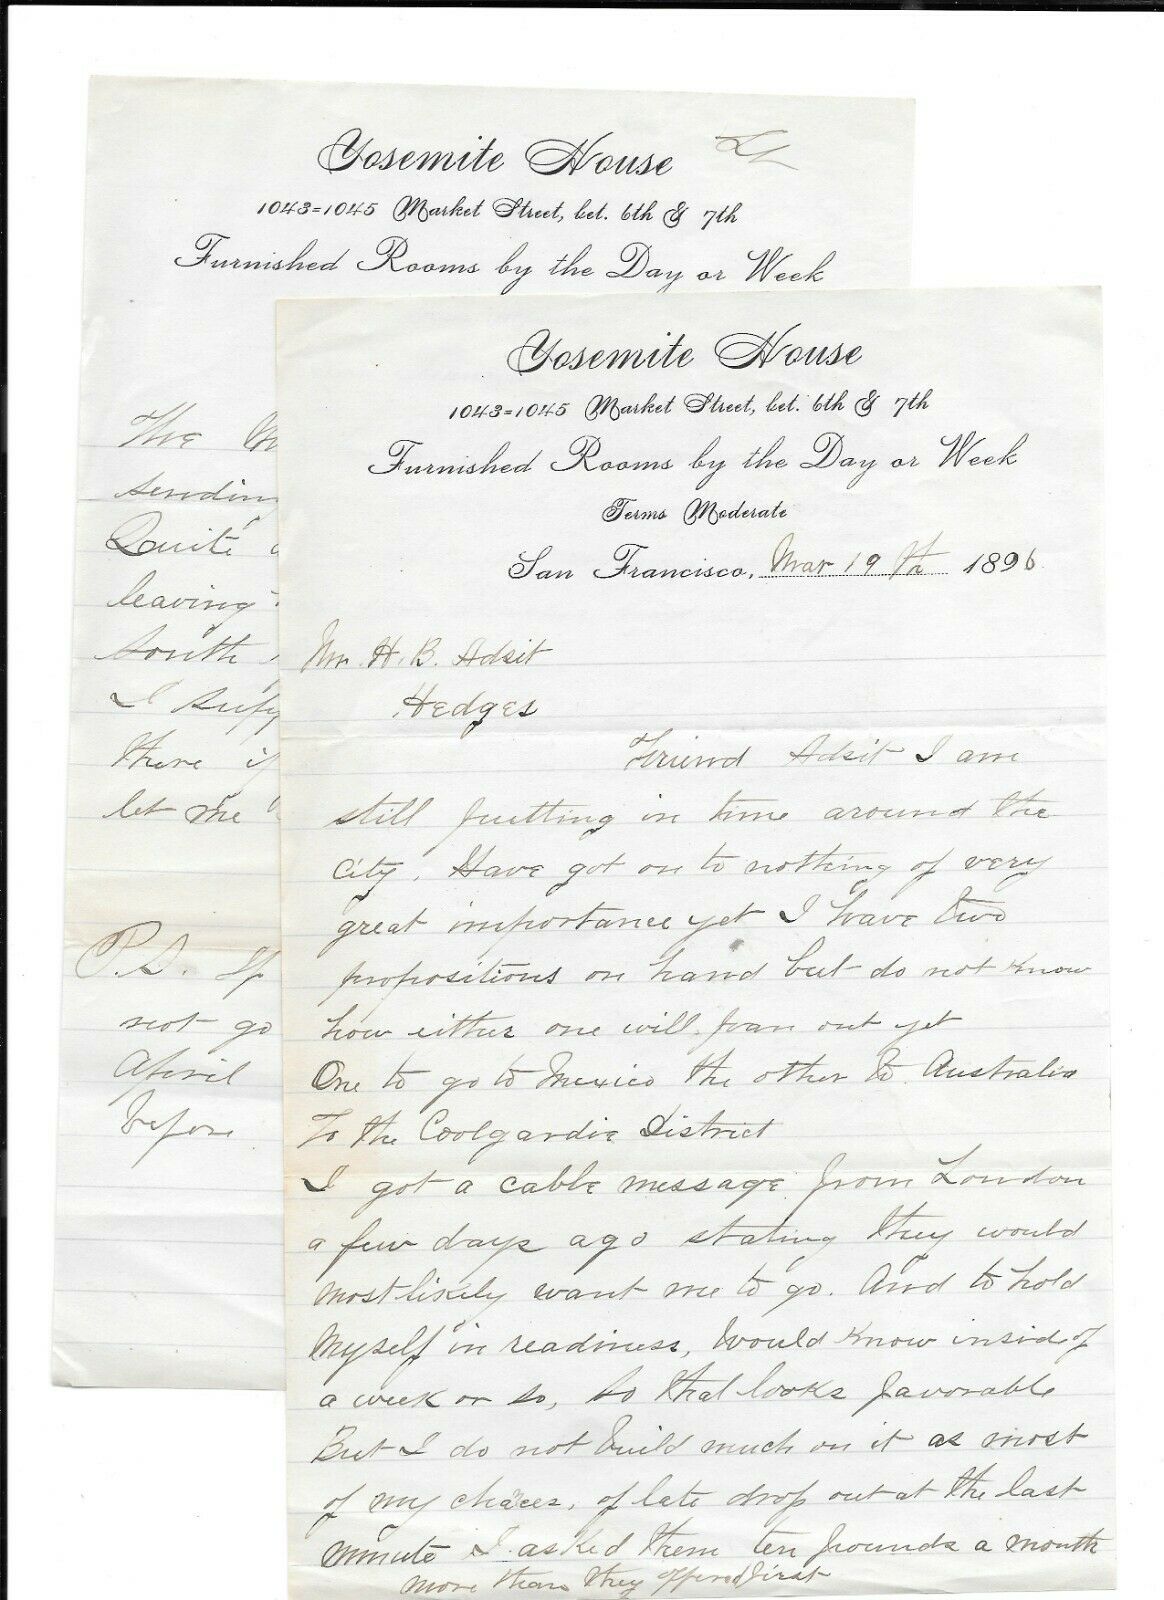 Yosemite House
1043=1045 Market Street, bet. 6th & 7th
Furnished Rooms by the Day or Week
The
sending
Quite
leaving
South
I
there if
let me
P.S. If
not go
April
before
Yosemite House
1043=1045 Market Street, bet. 6th & 7th
Furnished Rooms by the Day or Week
Terms Moderate
San Francisco, Mar 19th 1896
Mr. H. B. Adsit
Hedges
Friend Adsit I am
still putting in time around the
City. Have got on to nothing of very
great importance yet I have two
propositions on hand but do not know
how either one will pan out yet
One to go to Mexico the other to Australia
To the Coolgardie District
I got a cable message from London
a few days ago stating they would
most likely want me to go. And to hold
Myself in readiness, Would know insid of
a week or so, So that looks favorable
But I do not build much on it as most
of my chaces, of late drop out at the last
minute I asked them ten pounds a month
more than they offered first